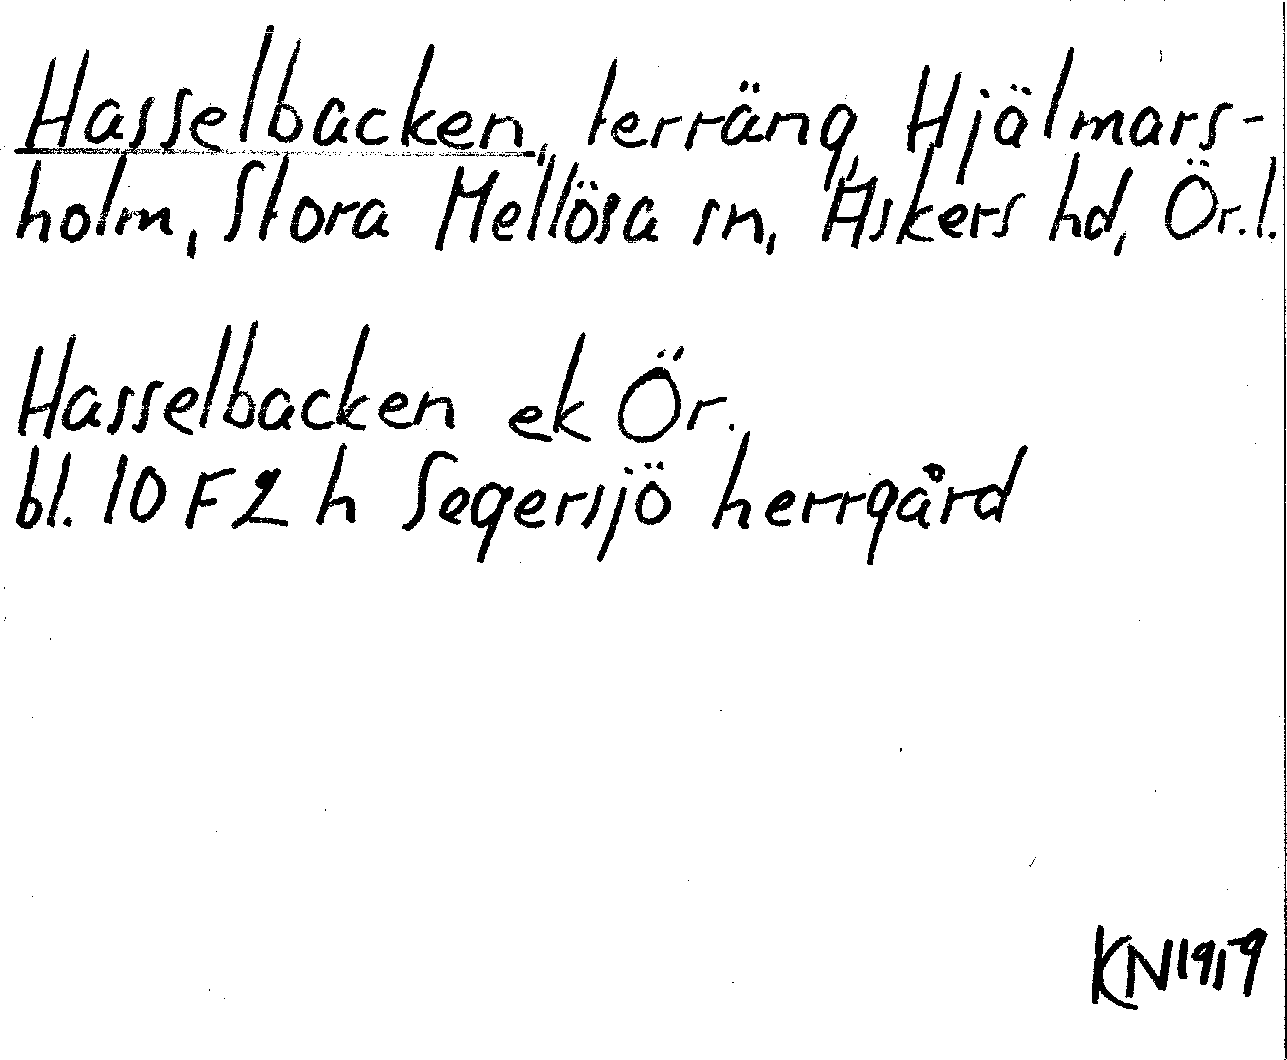 Hasselbacken, terräng, Hjälmars-
holm, Stora Mellösa sn, Askers hd, Ör.l.
Hasselbacken ek Ör.
bl. 10 F 2 h Segersjö herrgård
KN1919